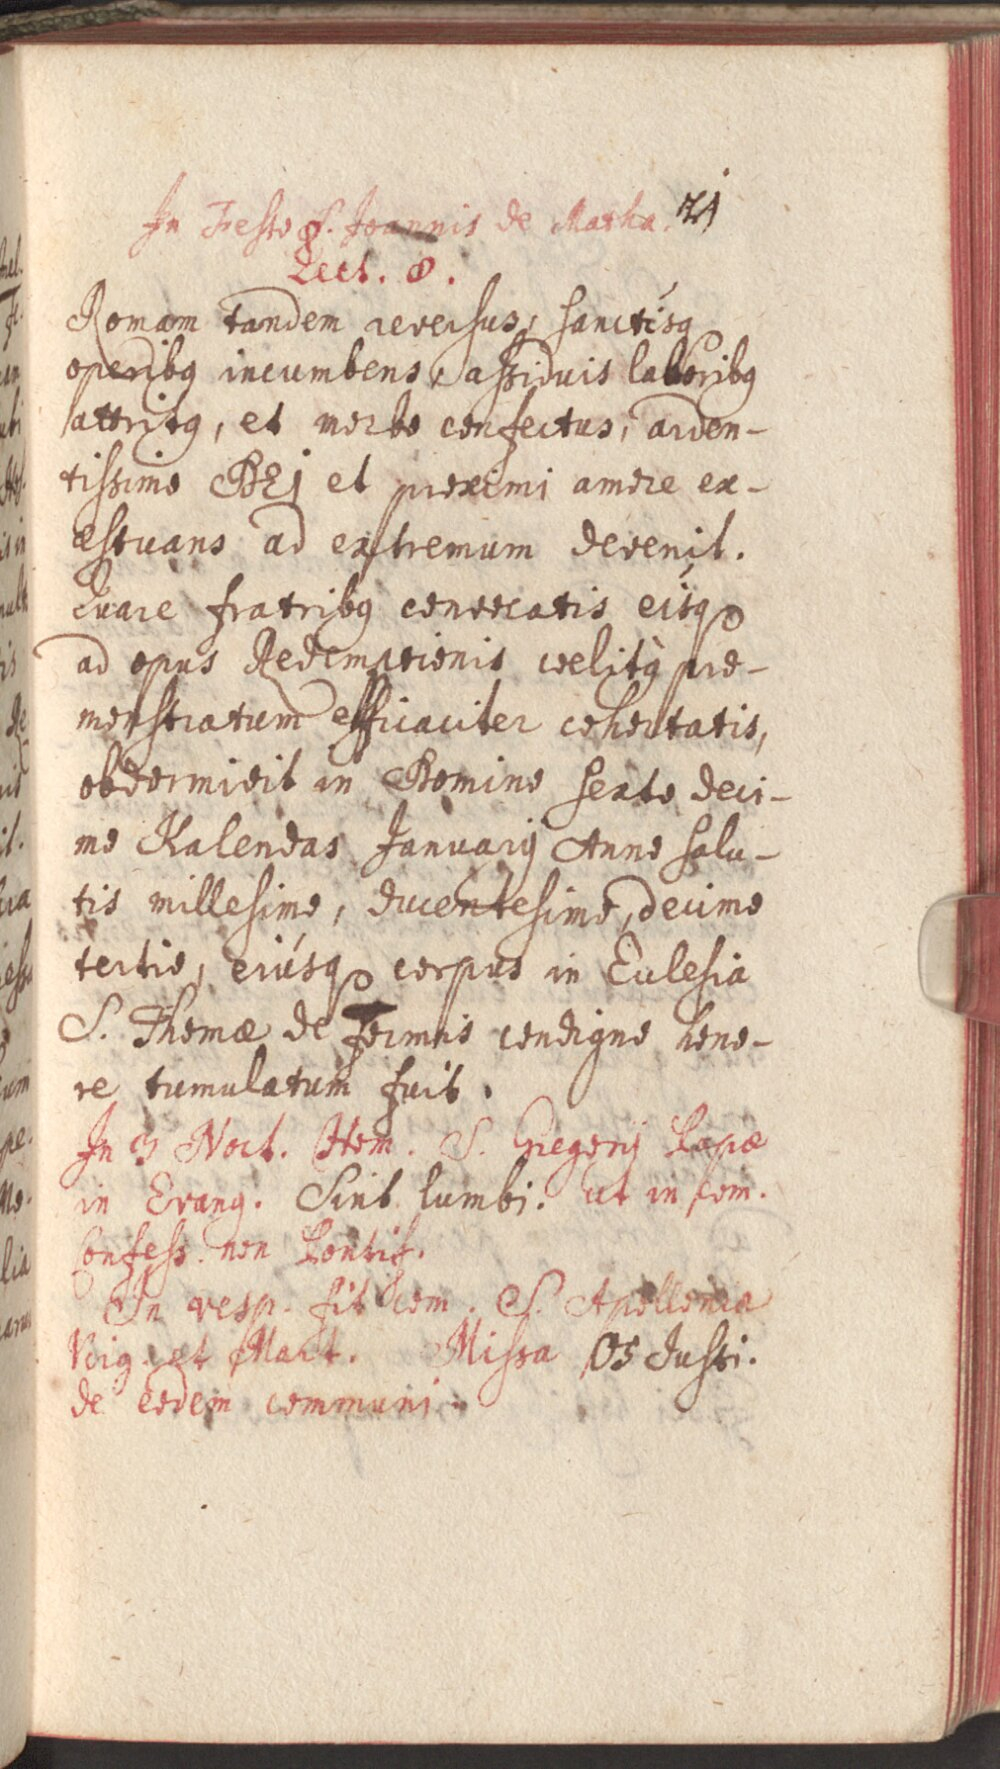 In Festo S. Joannis de Matha. 21
Lect. 8.
Romam tandem reversus, sanctísq
operibq incumbens, assiduis laboribq
attritq, et morbo confectus, arden-
tissimo DEI et proximi amore ex-
æstuans ad extremum devenit.
Quare fratribq convocatis eísq
ad opus Redemptionis coelitq præ-
monstratum efficaciter cohortatis,
obdormivit in Domino sexto deci-
mo Kalendas Januarij Anno salu-
tis millesimo, ducentesimo, decimo
tertio, eiúsq corpus in Ecclesia
S. Thomæ de Formis condigno hono-
re tumulatum fuit.
In 3 Noct. Hom. S. Gregorij Papæ
in Evang. Sint lumbi. ut in com.
Confess. non Pontif.
In vesp. fit com. S. Apolloniæ
Virg. et Mart. Missa Os Justi.
de eodem communi.